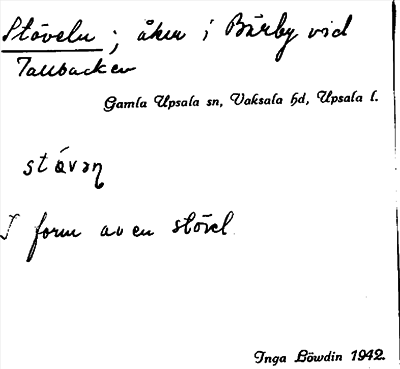 Stöveln ; åker i Bärby vid
Tallbacken
Gamla Upsala sn, Vaksala hd, Upsala l.
stǿvəɳ
I form av en stövel
Inga Löwdin 1942.